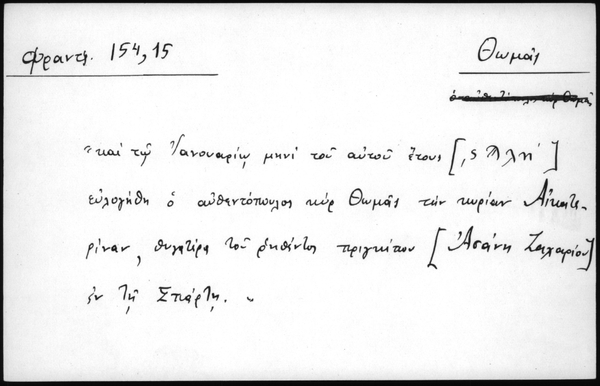 Φραντζ. 154,15
Θωμᾶς
"καὶ τῷ Ἰανουαρίῳ μηνὶ τοῦ αὐτοῦ ἔτους [,ϛ ϡλη']
εὐλογήθη ὁ αὐθεντόπουλος κὺρ Θωμᾶς τὴν κυρίαν Αἰκατε-
ρίναν, θυγατέρα τοῦ ῥηθέντος πριγκίπου [Ἀσάνη Ζαχαρίου]
ἐν τῇ Σπάρτῃ.